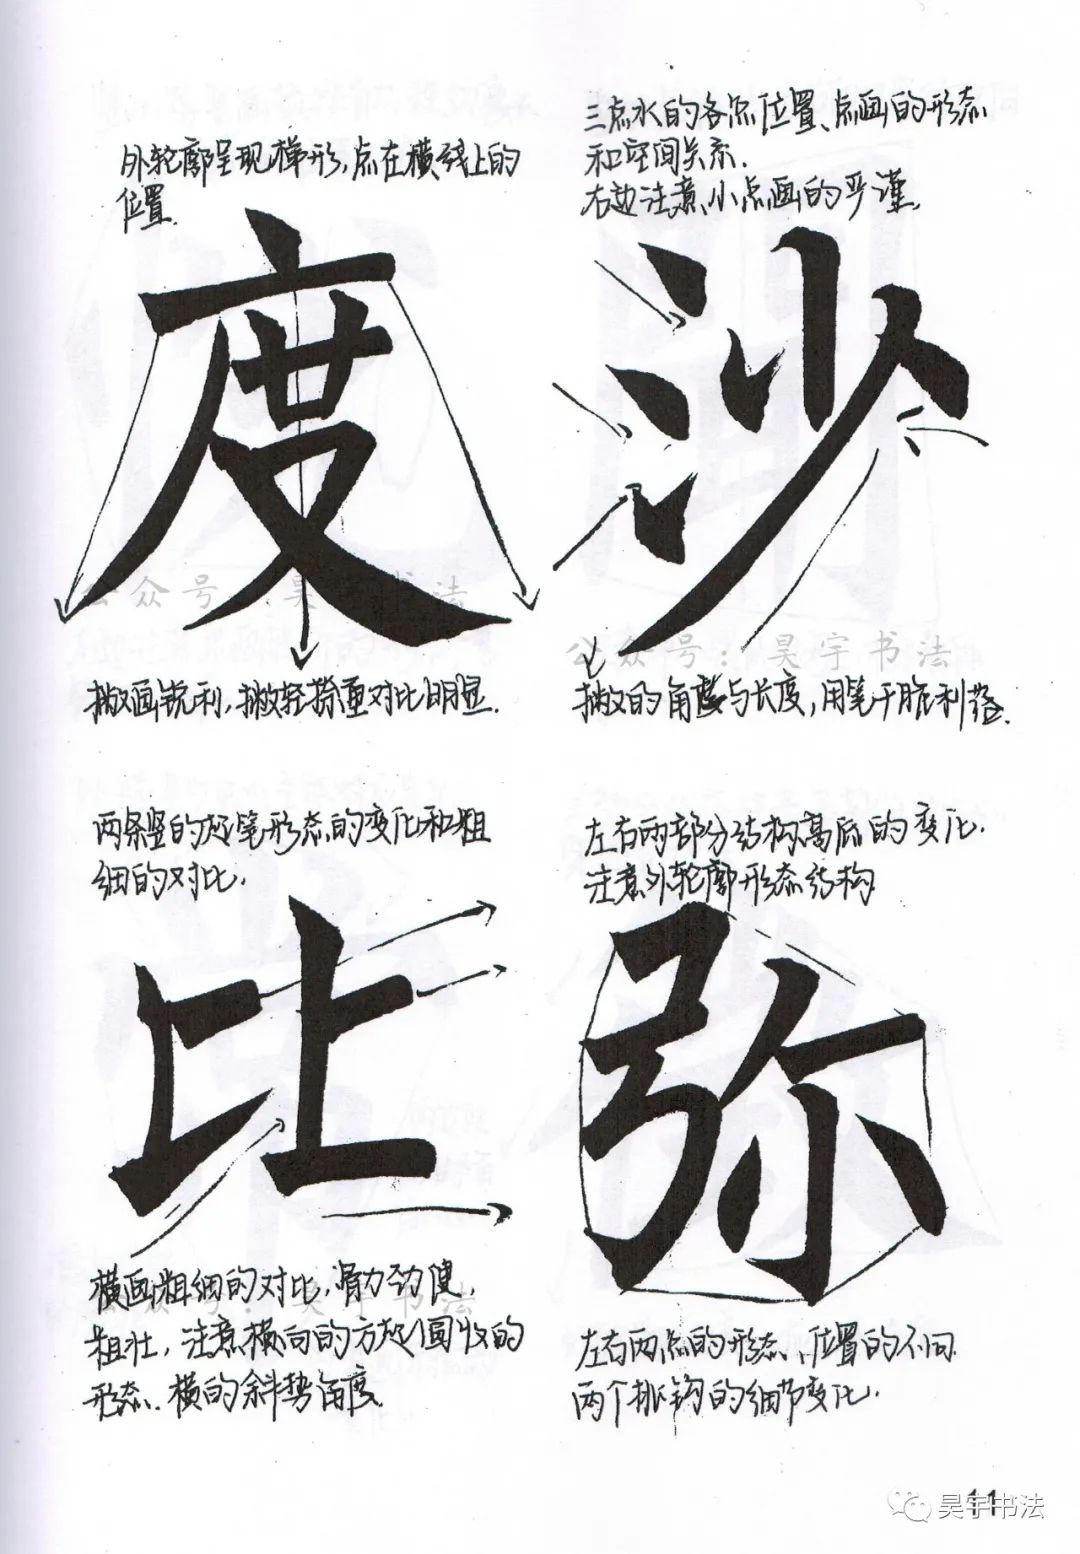 外轮廓呈现梯形,点在横线上的
位置.
度
公众号:昊宇书法
撇画锐利,撇轻捺重对比明显.
三点水的各点位置、点画的形态
和空间关系.
右边注意小点画的严谨.
沙
公众号:昊宇书法
撇的角度与长度,用笔干脆利落.
两条竖的起笔形态的变化和粗
细的对比.
比
横画粗细的对比,骨力劲健,
公众号:昊宇书法
粗壮,注意横向的方起圆收的
形态、横的斜势角度.
左右两部分结构高低的变化.
注意外轮廓形态结构
弥
左右两点的形态、位置的不同.
两个挑钩的细节变化.
11
昊宇书法